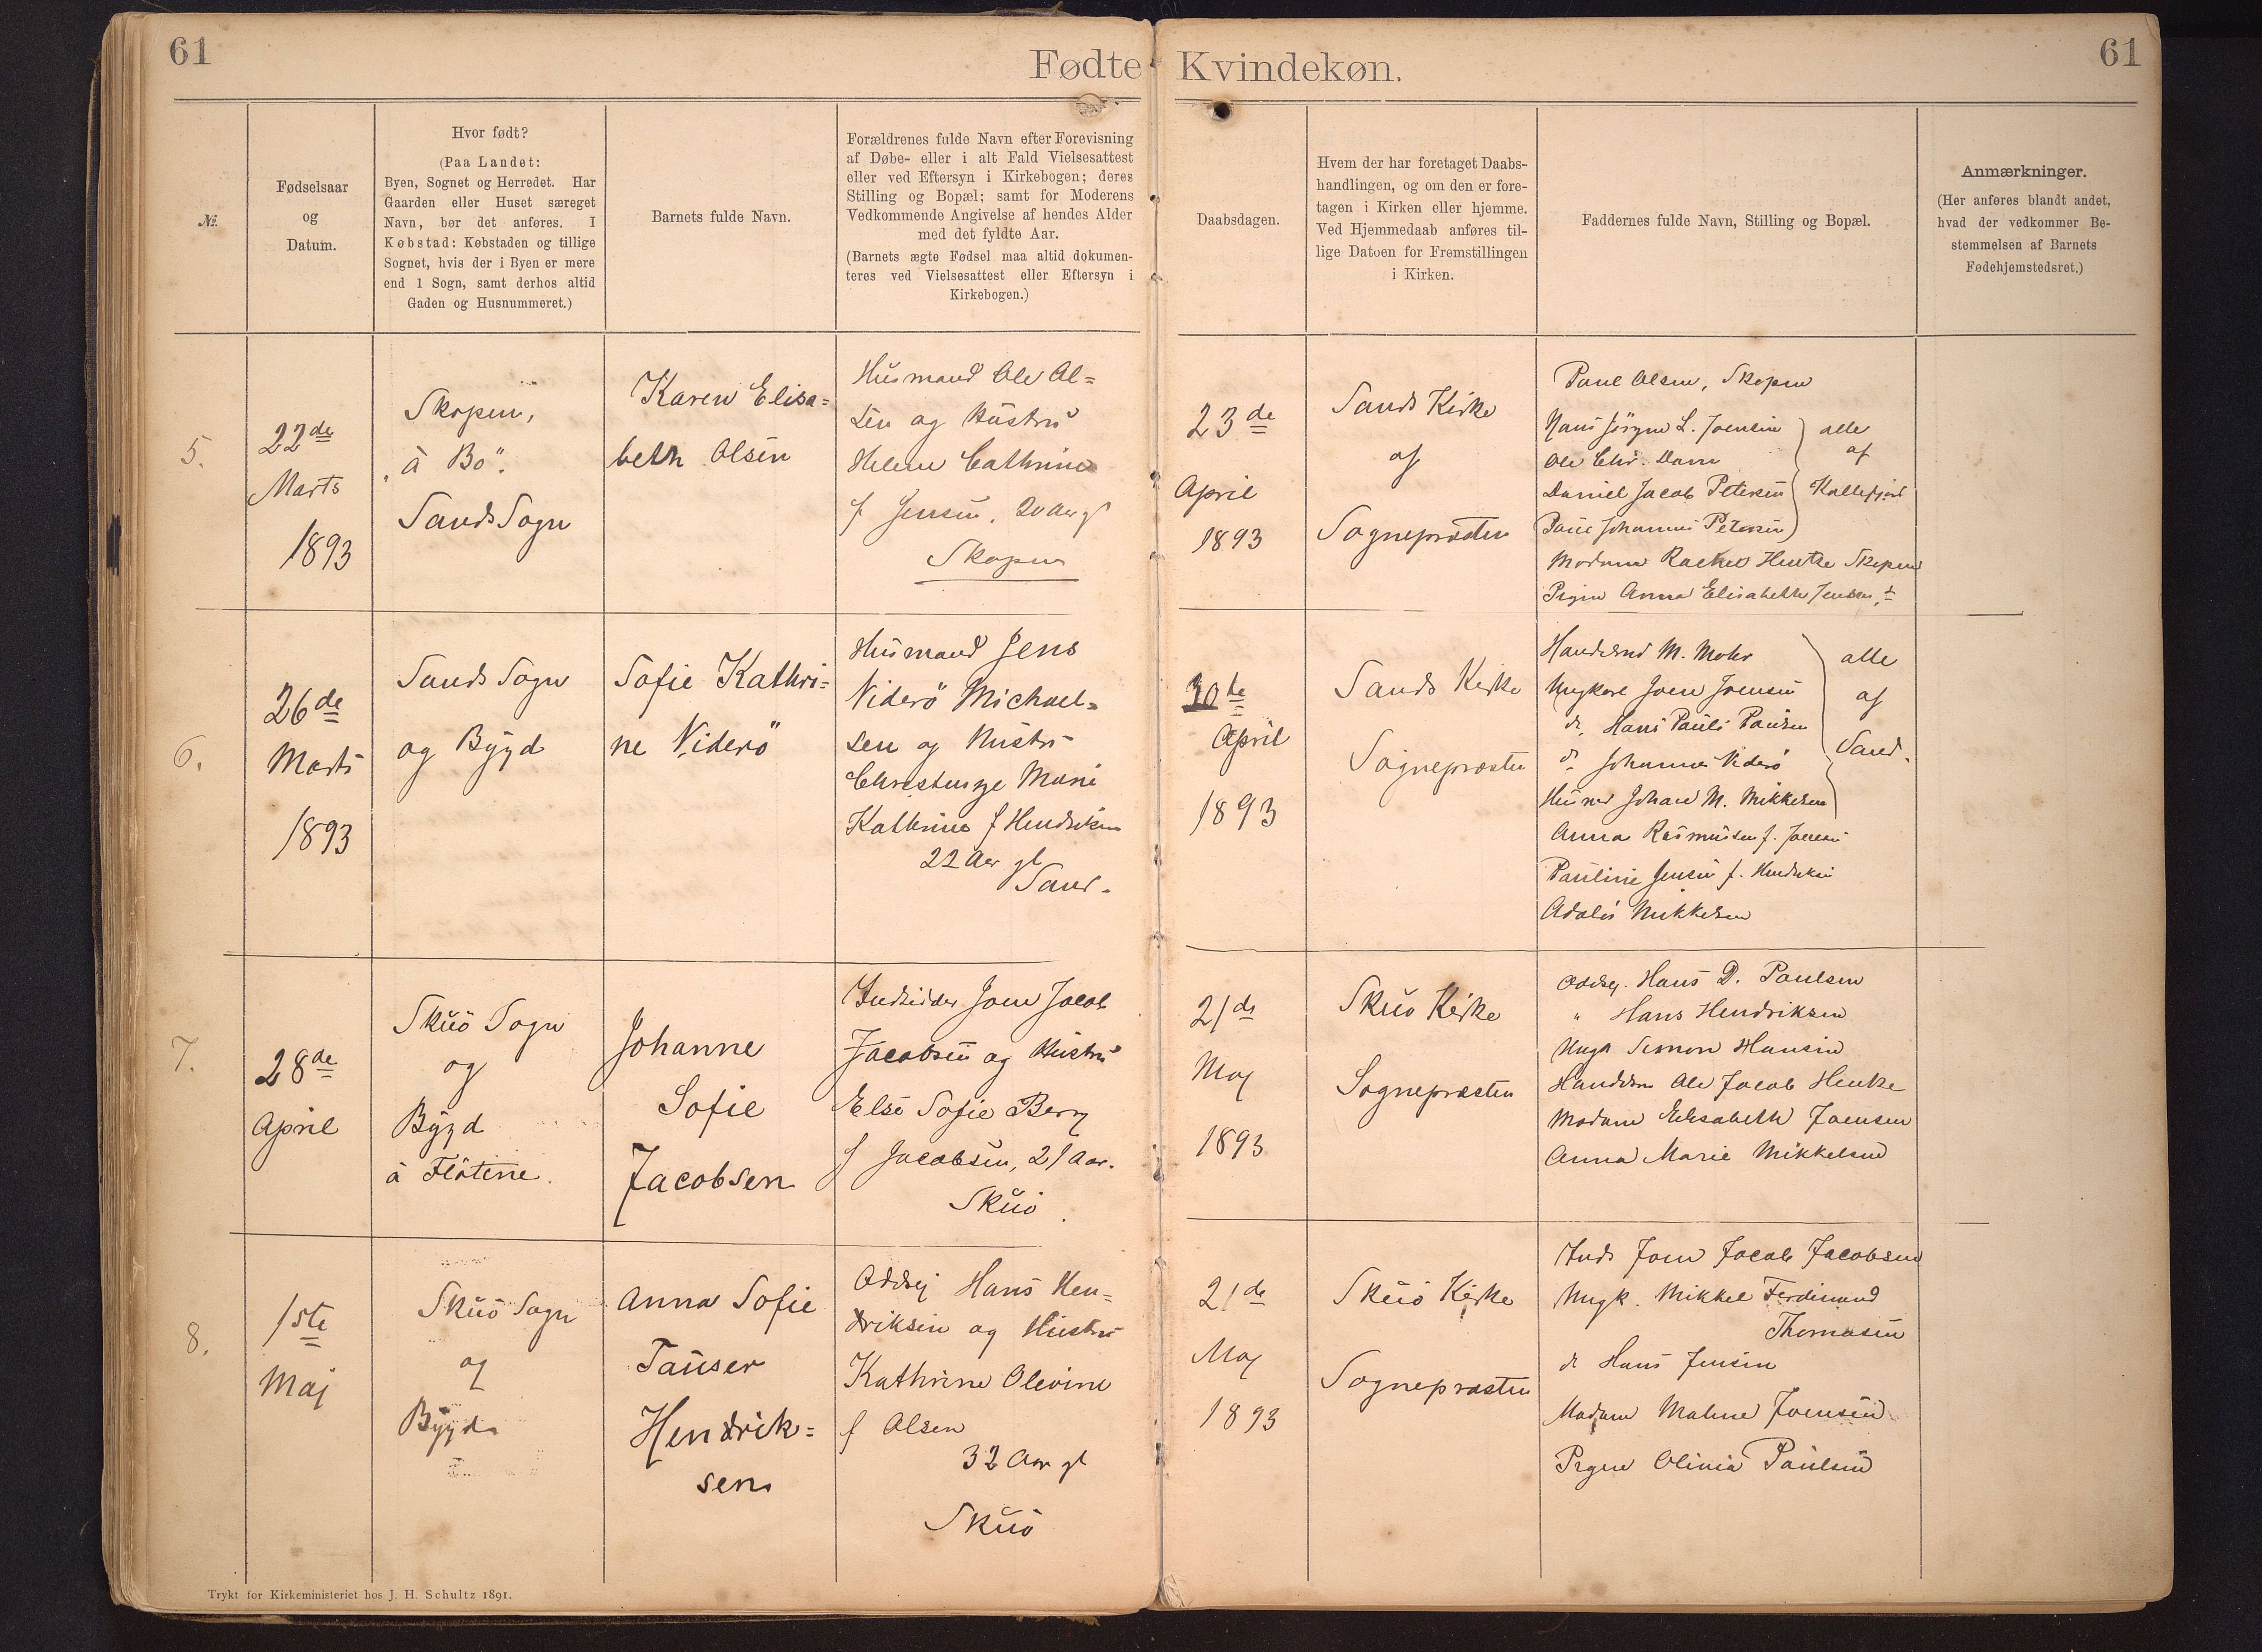 61
Fødte Kvindekøn.
61
№.
Fødselsaar
og
Datum.
Hvor født?
(Paa Landet:
Byen, Sognet og Herredet. Har
Gaarden eller Huset særeget
Navn, bør det anføres. I
Købstad: Købstaden og tillige
Sognet, hvis der i Byen er mere
end 1 Sogn, samt derhos altid
Gaden og Husnummeret.)
Barnets fulde Navn.
Forældrenes fulde Navn efter Forevisning
af Døbe- eller i alt Fald Vielsesattest
eller ved Eftersyn i Kirkebogen; deres
Stilling og Bopæl; samt for Moderens
Vedkommende Angivelse af hendes Alder
med det fyldte Aar.
(Barnets ægte Fødsel maa altid dokumen-
teres ved Vielsesattest eller Eftersyn i
Kirkebogen.)
Daabsdagen.
Hvem der har foretaget Daabs-
handlingen, og om den er fore-
tagen i Kirken eller hjemme.
Ved Hjemmedaab anføres til-
lige Datoen for Fremstillingen
i Kirken.
Faddernes fulde Navn, Stilling og Bopæl.
Anmærkninger.
(Her anføres blandt andet,
hvad der vedkommer Be-
stemmelsen af Barnets
Fødehjemstedsret.)
5.
22de
Marts
1893
Skopen,
"à Bö".
Sands Sogn
Karen Elisa=
beth Olsen
Husmand Ole Ol=
sen og Hustru
Helene Cathrine
f Jensen, 20 Aar gl
Skopen
23de
April
1893
Sands Kirke
af
Sognepræsten
Poul Olsen, Skopen
Hans Jörgen L. Joensen
Ole Chr. Dam
Daniel Jacob Petersen
Poul Johannes Petersen
alle
af
Madame Rachel Hentze Skopen
Pigen Anna Elisabeth Jensen,
6.
26de
Marts
1893
Sands Sogn
og Bygd
Sofie Kathri=
ne Viderö
Husmand Jens
Viderö Michael=
sen og Hustru
Marie
Kathrine f Hendriksen
22 Aar gl
Sand.
30te
April
1893
Sands Kirke
Sognepræsten
M. Mohr
Ungkarl Joen Joensen
do. Hans Pauli Poulsen
do Johannes Viderö
Johan M. Mikkelsen
alle
af
Sand.
Anna Rasmussen f. Joensen
Pauline Jensen f. Hendriksen
Mikkelsen
7.
28de
April
Skuö Sogn
og
Bygd
à Flötene.
Johanne
Sofie
Jacobsen
Indsidder Joen Jacob
Jacobsen og Hustru
Else Sofie Berg
f Jacobsen, 21 Aar.
Skuö.
21de
Maj
1893
Skuö Kirke
Sognepræsten
Odelsej. Hans D. Poulsen
" Hans Hendriksen
Ungk Simon Hansen
Ole Jacob Hentze
Madame Elisabeth Joensen
Anna Marie Mikkelsen
8.
1ste
Maj
Skuö Sogn
og
Bygd
Anna Sofie
Tauser
Hendrik=
sen
Odelsej Hans Hen=
driksen og Hustru
Kathrine Olevine
f Olsen
32 Aar gl
Skuö
21de
Maj
1893
Skuö Kirke
Sognepræsten
Inds Joen Jacob Jacobsen
Ungk. Mikkel Ferdinand
Thomasen
do Hans Jensen
Madame Malene Joensen
Pigen Olivia Poulsen
Trykt for Kirkeministeriet hos J. H. Schultz 1891.